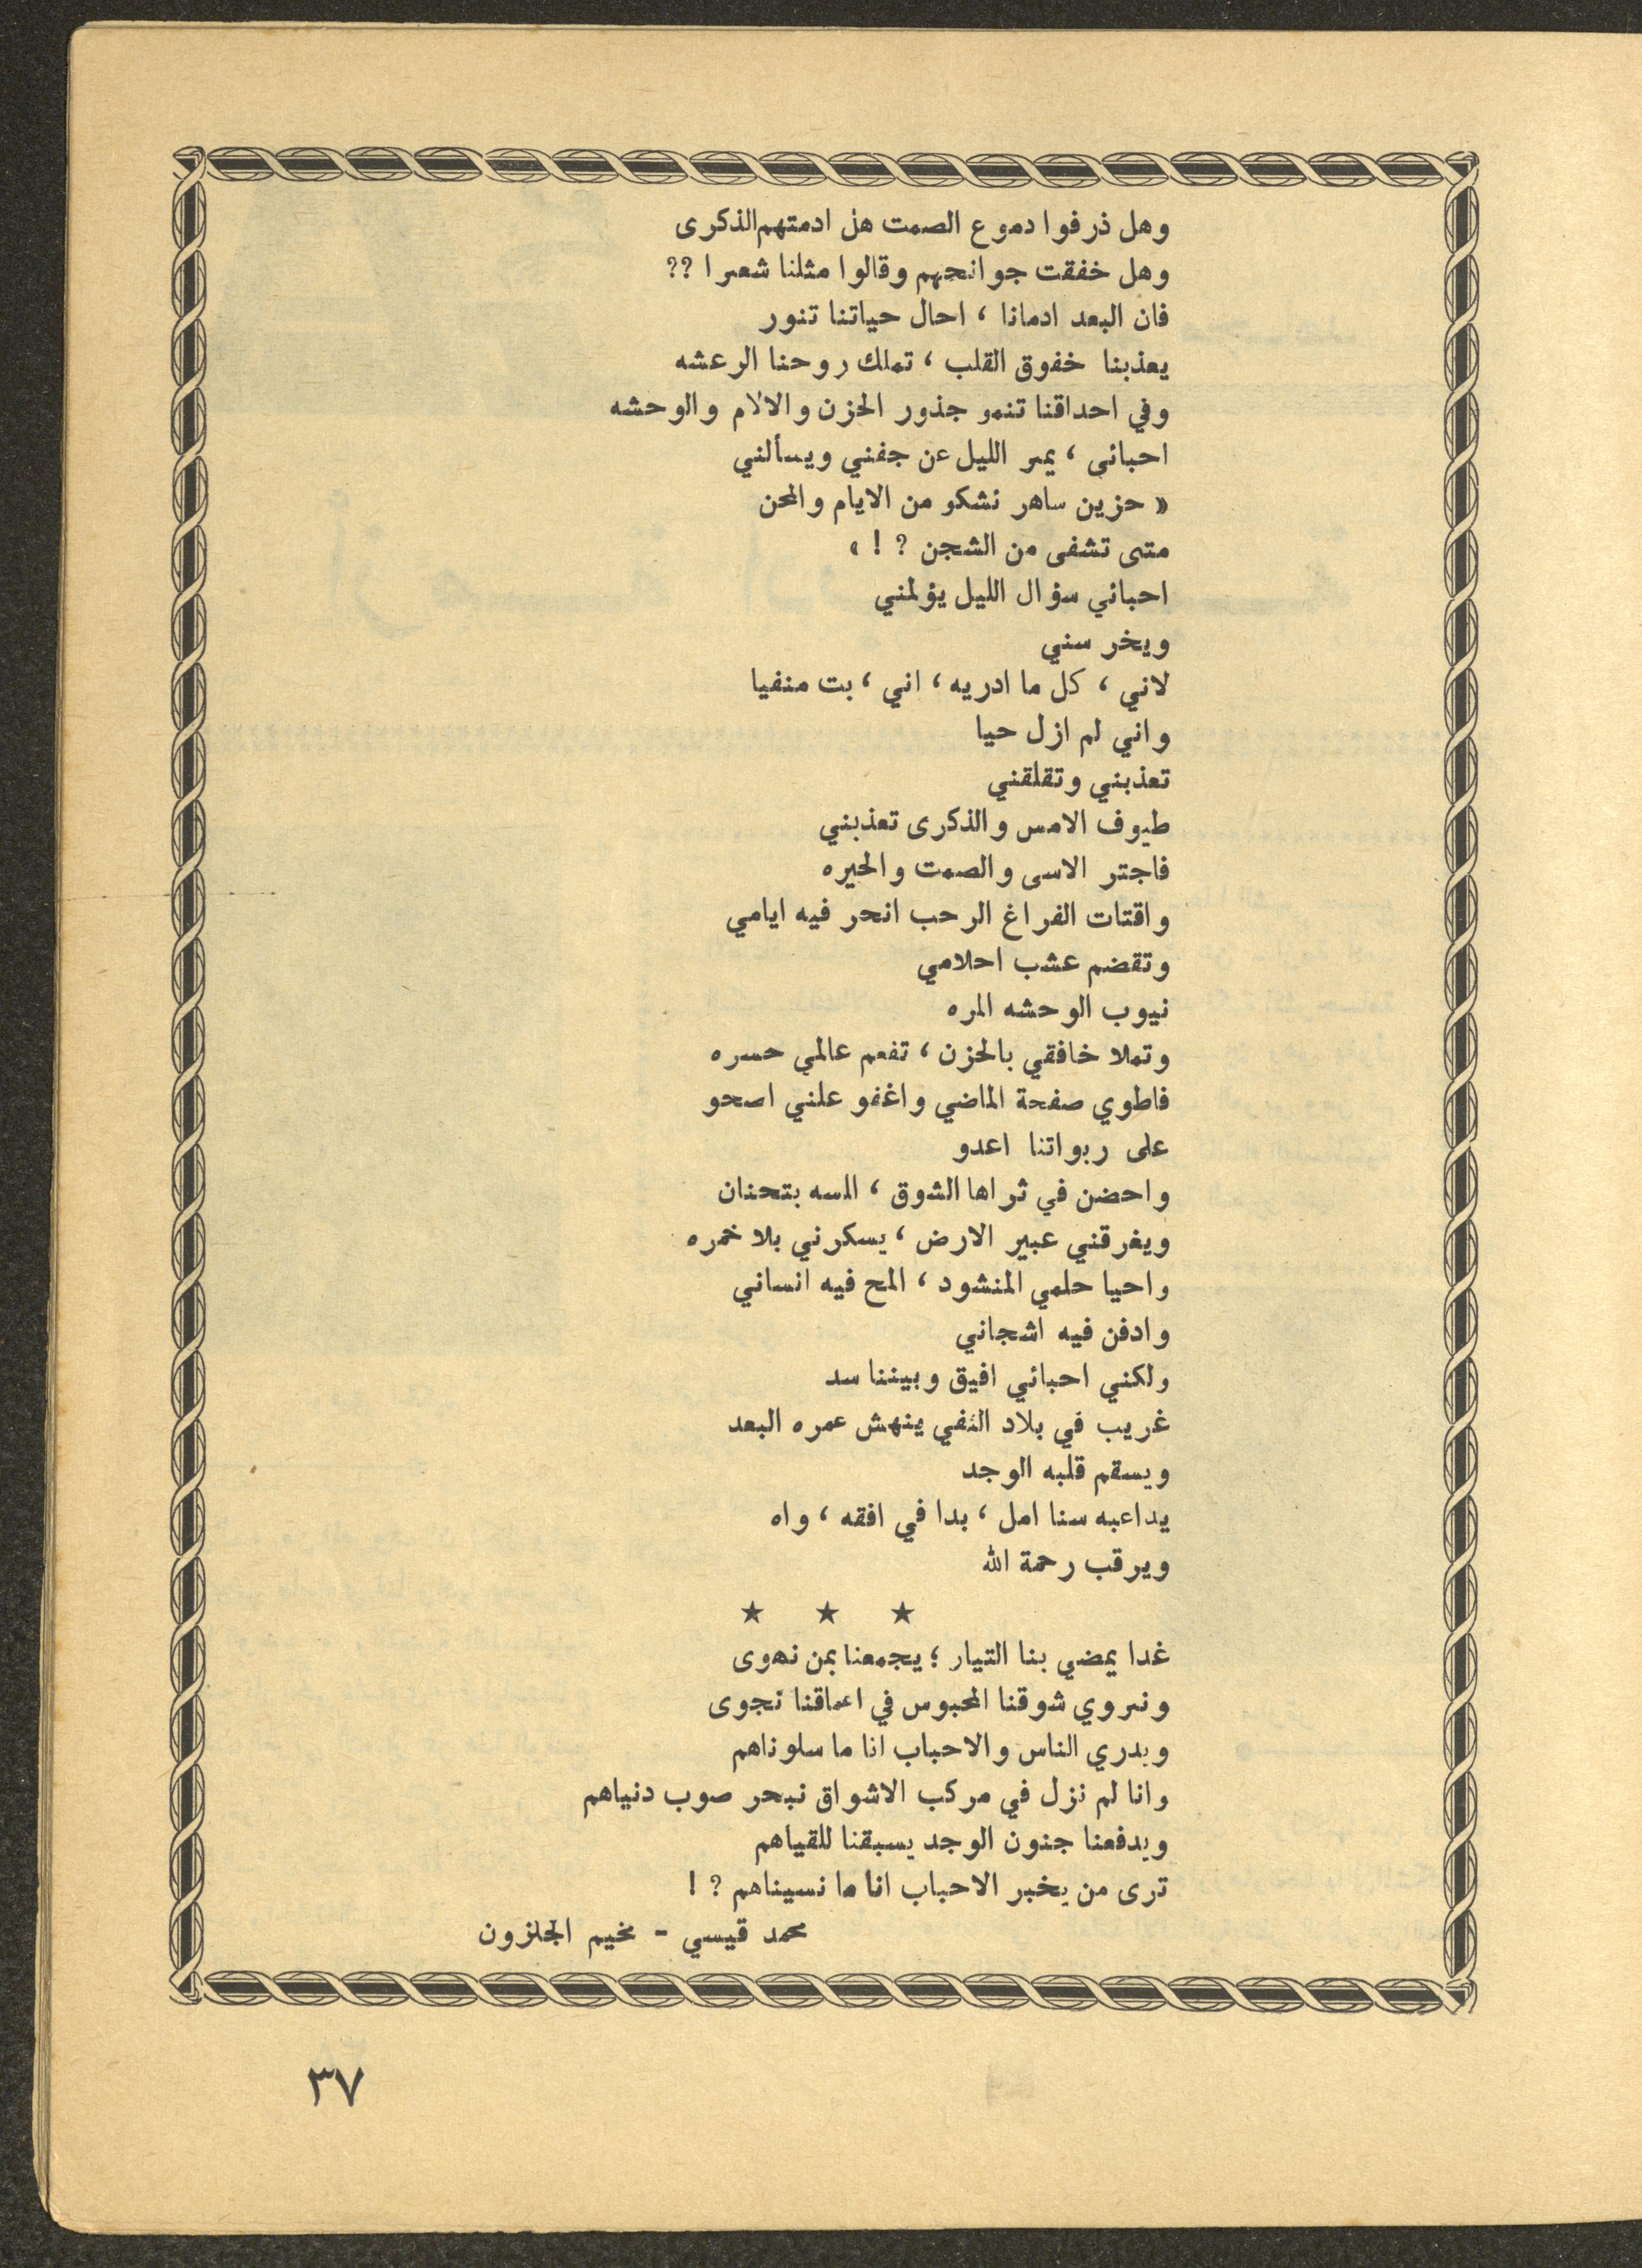 وهل ذرفوا دموع الصمت هل ادمتهم الذكرى
وهل خفقت جوانحهم وقالوا مثلنا شعرا ??
فان البعد ادمانا ، احال حياتنا تنور
يعذبنا خفوق القلب ، تملك روحنا الرعشه
وفي احداقنا تنمو جذور الحزن والالام والوحشه
احبائى ، يمر الليل عن جفني ويسألني
« حزين ساهر نشكو من الايام والمحن
متى تشفى من الشجن ? ! »
احبائي سؤال الليل يؤلمني
ويخرسني
لاني ، كل ما ادريه ، اني ، بت منفيا
واني لم ازل حيا
تعذبني وتقلقني
طيوف الامس والذكرى تعذبني
فاجتر الاسى والصمت والحيره
واقتات الفراغ الرحب انحر فيه ايامي
وتقضم عشب احلامي
نيوب الوحشه المره
وتملا خافقي بالحزن ، تفعم عالمي حسره
فاطوي صفحة الماضي واغفو علني اصحو
على ربواتنا اعدو
واحضن في ثراها الشوق ، المسه بتحنان
ويغرقني عبير الارض ، يسكرني بلا خمره
واحيا حلمي المنشود ، المح فيه انساني
وادفن فيه اشجاني
ولكني احبائي افيق وبيننا سد
غريب في بلاد النفي ينهش عمره البعد
ويسقم قلبه الوجد
يداعبه سنا امل ، بدا في افقه ، واه
ويرقب رحمة الله
★ ★ ★
غدا يمضي بنا التيار ؛ يجمعنا بمن نهوى
ونروي شوقنا المحبوس في اعماقنا نجوى
ويدري الناس والاحباب انا ما سلوناهم
وانا لم نزل في مركب الاشواق نبحر صوب دنياهم
ويدفعنا جنون الوجد يسبقنا للقياهم
ترى من يخبر الاحباب انا ما نسيناهم ? !
محمد قيسي - مخيم الجلزون
٣٧